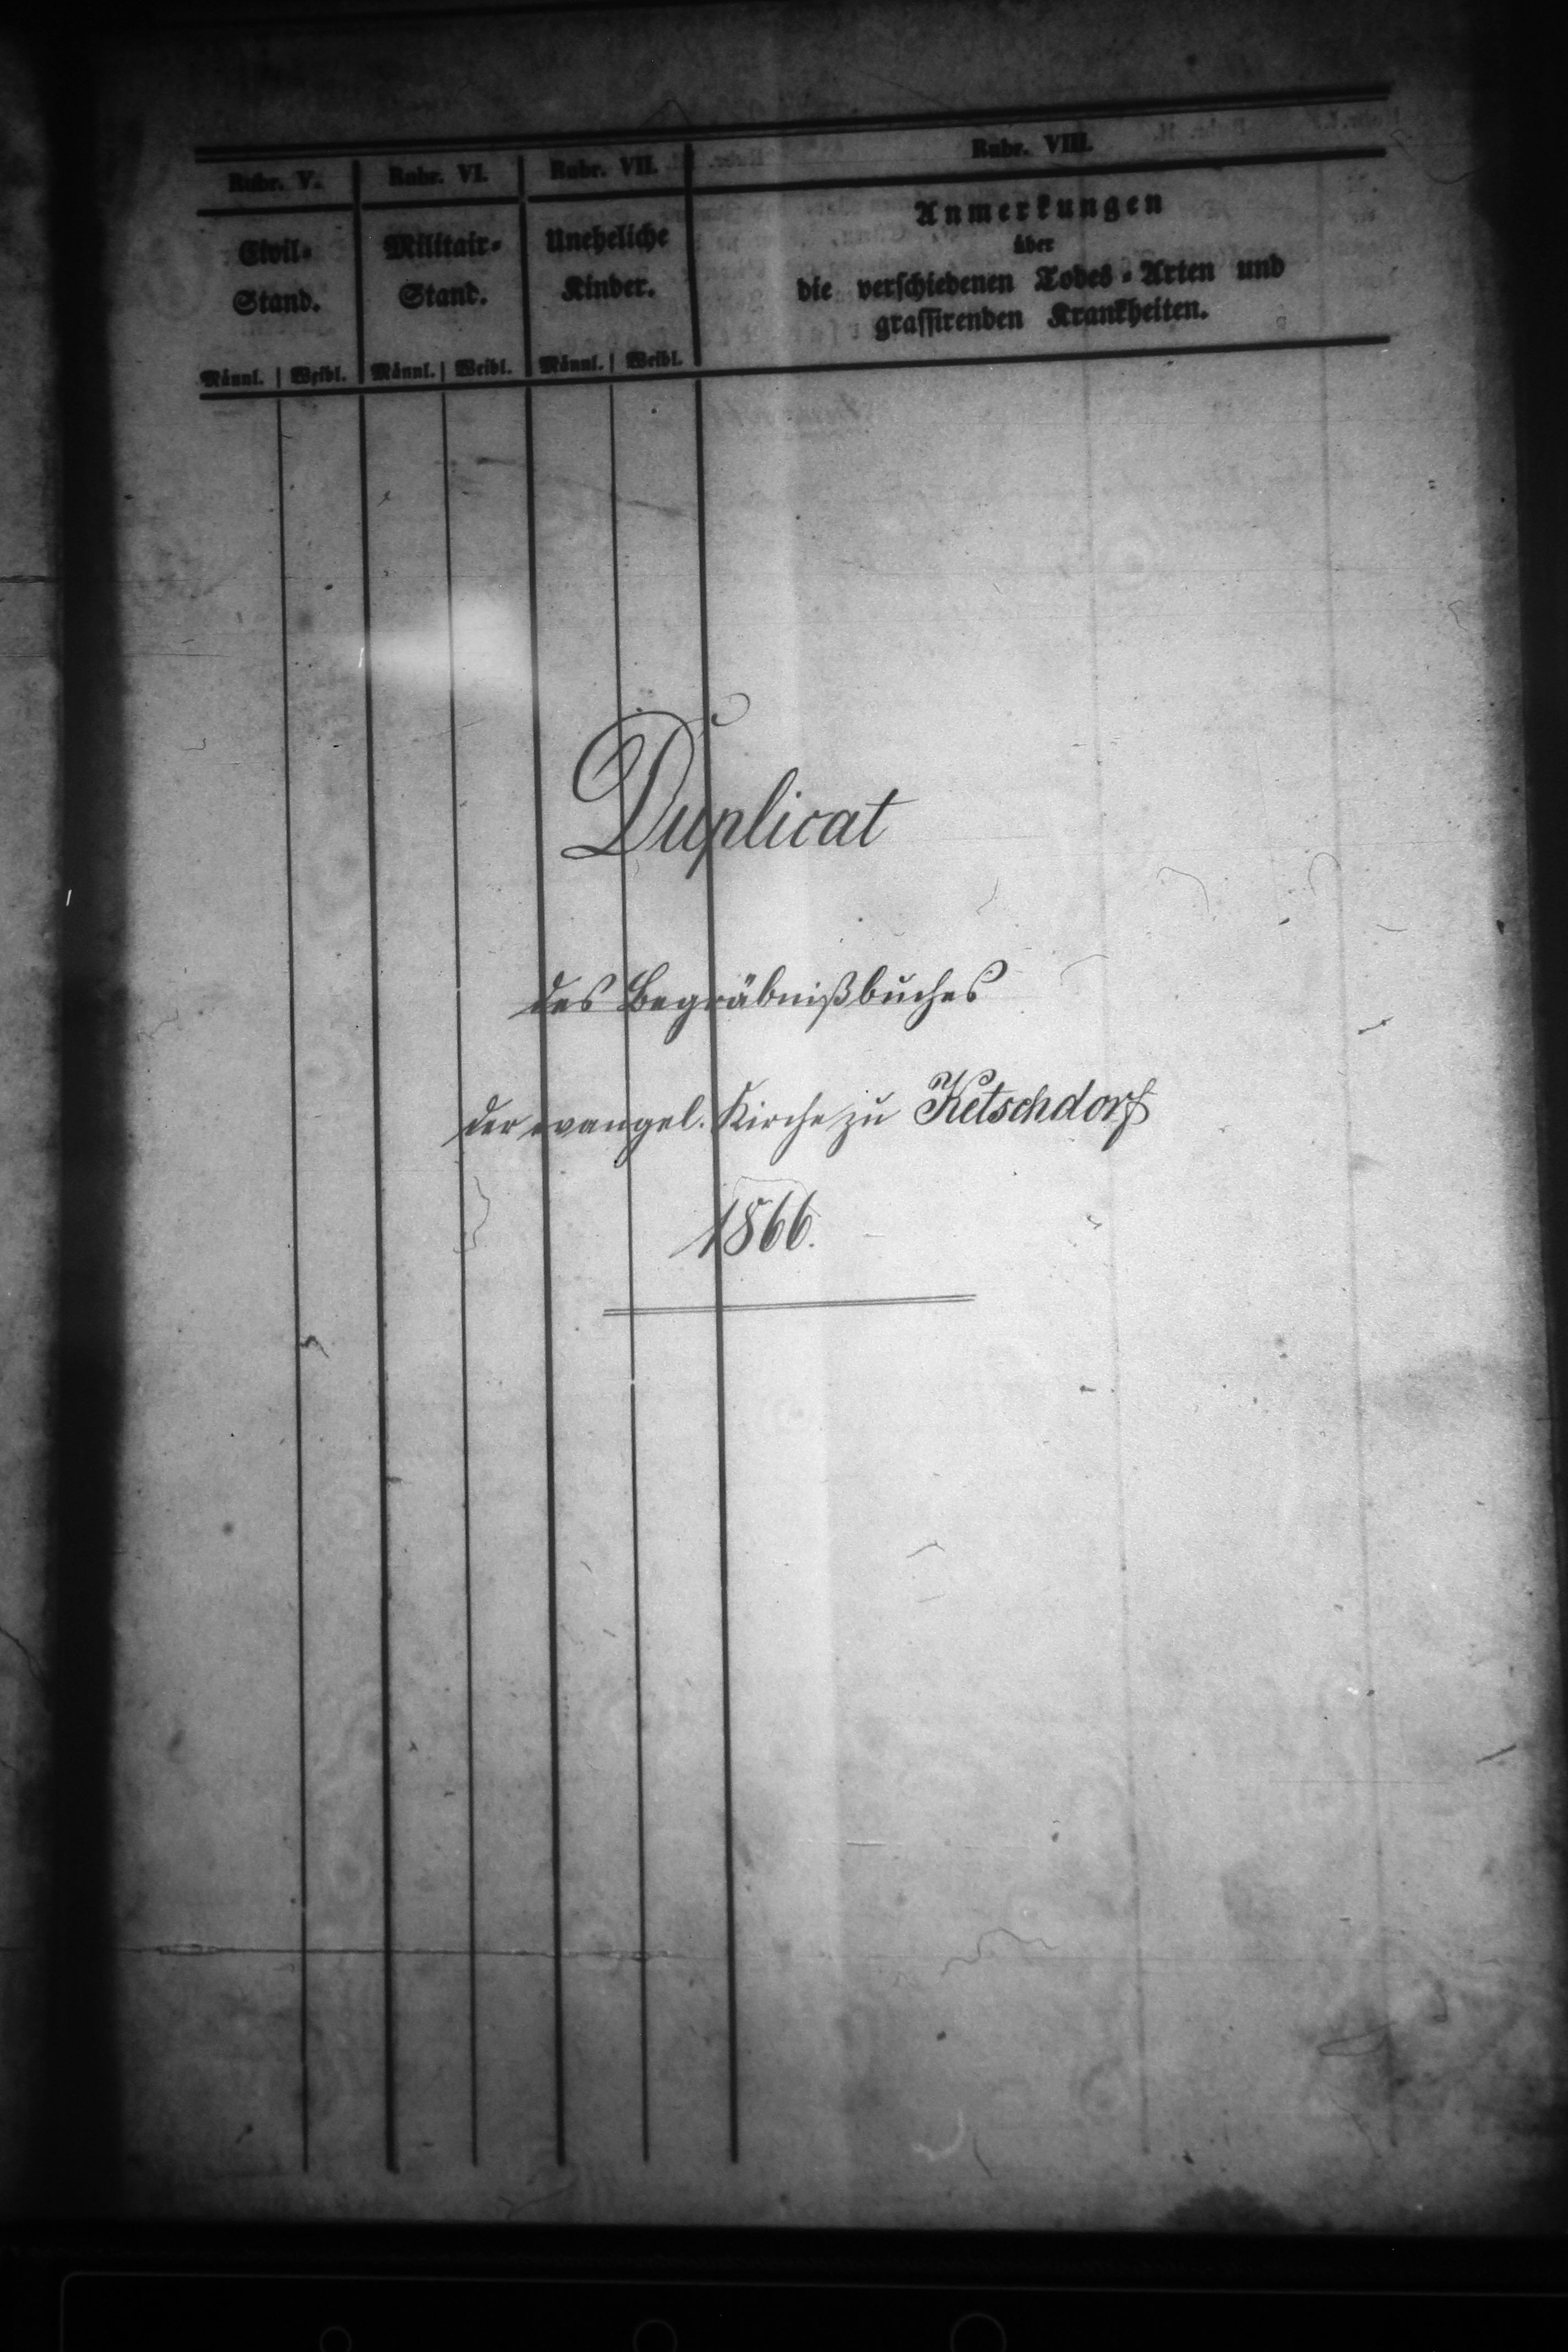 Rubr. V. Rubr. VI. Rubr. VII. Rubr. VIII.
Civil= Stand. Militair= Stand. Uneheliche Kinder. Anmerkungen
über
die verschiedenen Todes=Arten und
grassirenden Krankheiten.
Männl. Weibl. Männl. Weibl. Männl. Weibl.
Duplicat
des Begräbnißbuches
der evangel. Kirche zu Ketschdorf
1866.